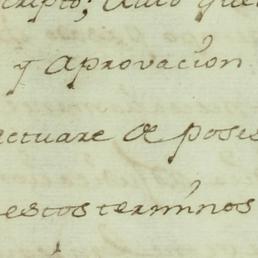 cripto;
y aprovacion
ectuare de poses
estos terminos